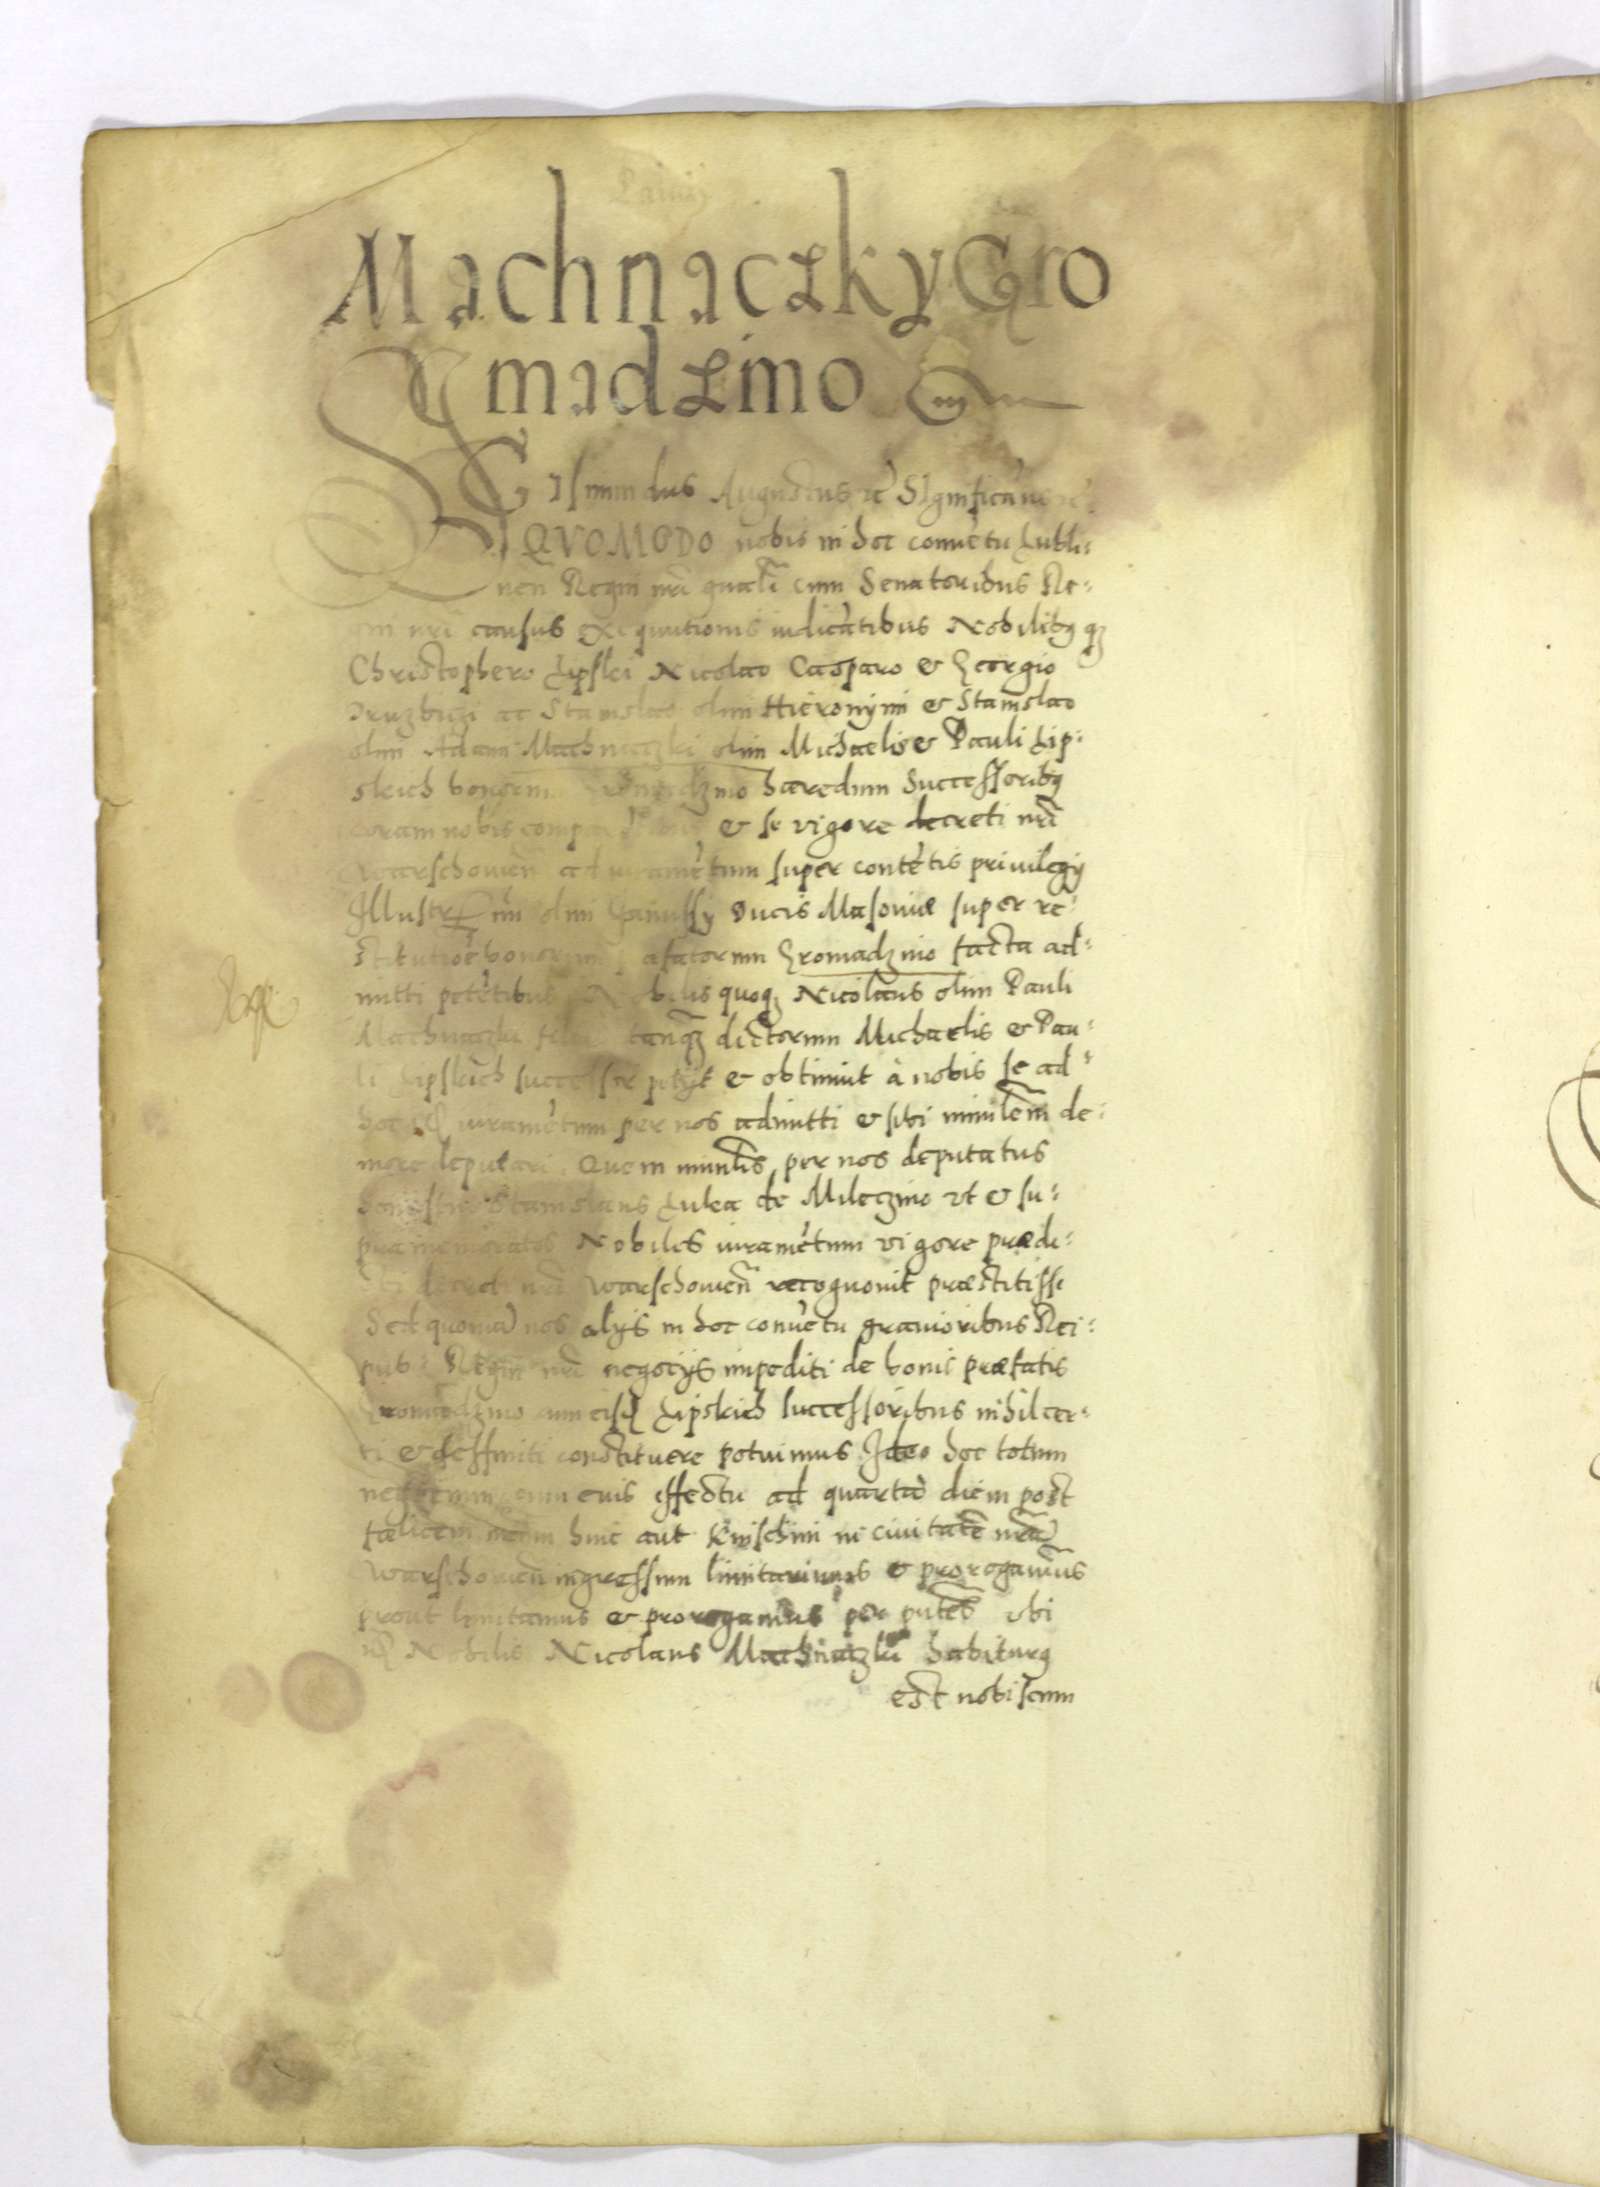 Machnaczky Gro
madzino
Sigismundus Augustus etc Significamus etc
QVOMODO nobis in hoc conuētu Lubli-
nēn Regni nrī gnali cum Senatoribus Re-
gni nrī causas exequutionis iudicātibus Nobilibq
Christophero Lipski Nicolao Casparo & Georgio
Druzbiczi ac Stanislao olim Hieronymi & Stanislao
olim Adam Machnatzki olim Michaelis & Pauli Lip-
skich bonorum Gromadzino haeredum Successoribq
coram nobis & se vigore decreti nrī
Warschouien ad iuramētum super contētis priuilegij
Illustr olim Janussy Ducis Masouiae super re-
stitutiōe bonorum Gromadzino facta ad-
mitti petētibus Nobilis quoq Nicolaus olim Pauli
Machnatzki tanq dictorum Michaelis & Pau-
li Lipskich successor petijt & obtinuit à nobis se ad
hoc iuramētum per nos admitti & sibi ministēm de
more deputari. Quem ministēs per nos deputatus
honestus Stanislaus Luka de Mileczino vt & su-
pra memoratos Nobiles iuramētum vigore praedi-
cti decreti nrī Warschouieñ recognouit praestitisse
Sed quoniā nos alijs in hoc conuētu grauioribus Rei-
pub: Regni nrī negocijs impediti de bonis praefatis
Gromadzino cum eisd Lipskich successoribus nihil cer-
ti & deffiniti constituere potuimus Ideo hoc totum
negocium cum euis effectu ad quartā diem post
faelicem nrūm hinc aut Knischini in ciuitatē nrām
Warschouieñ ingressum limitauimus & prorogauimus
prout limitamus & prorogamus per pntēs vbi
id Nobilis Nicolaus Machnatzki habiturq
est nobiscum